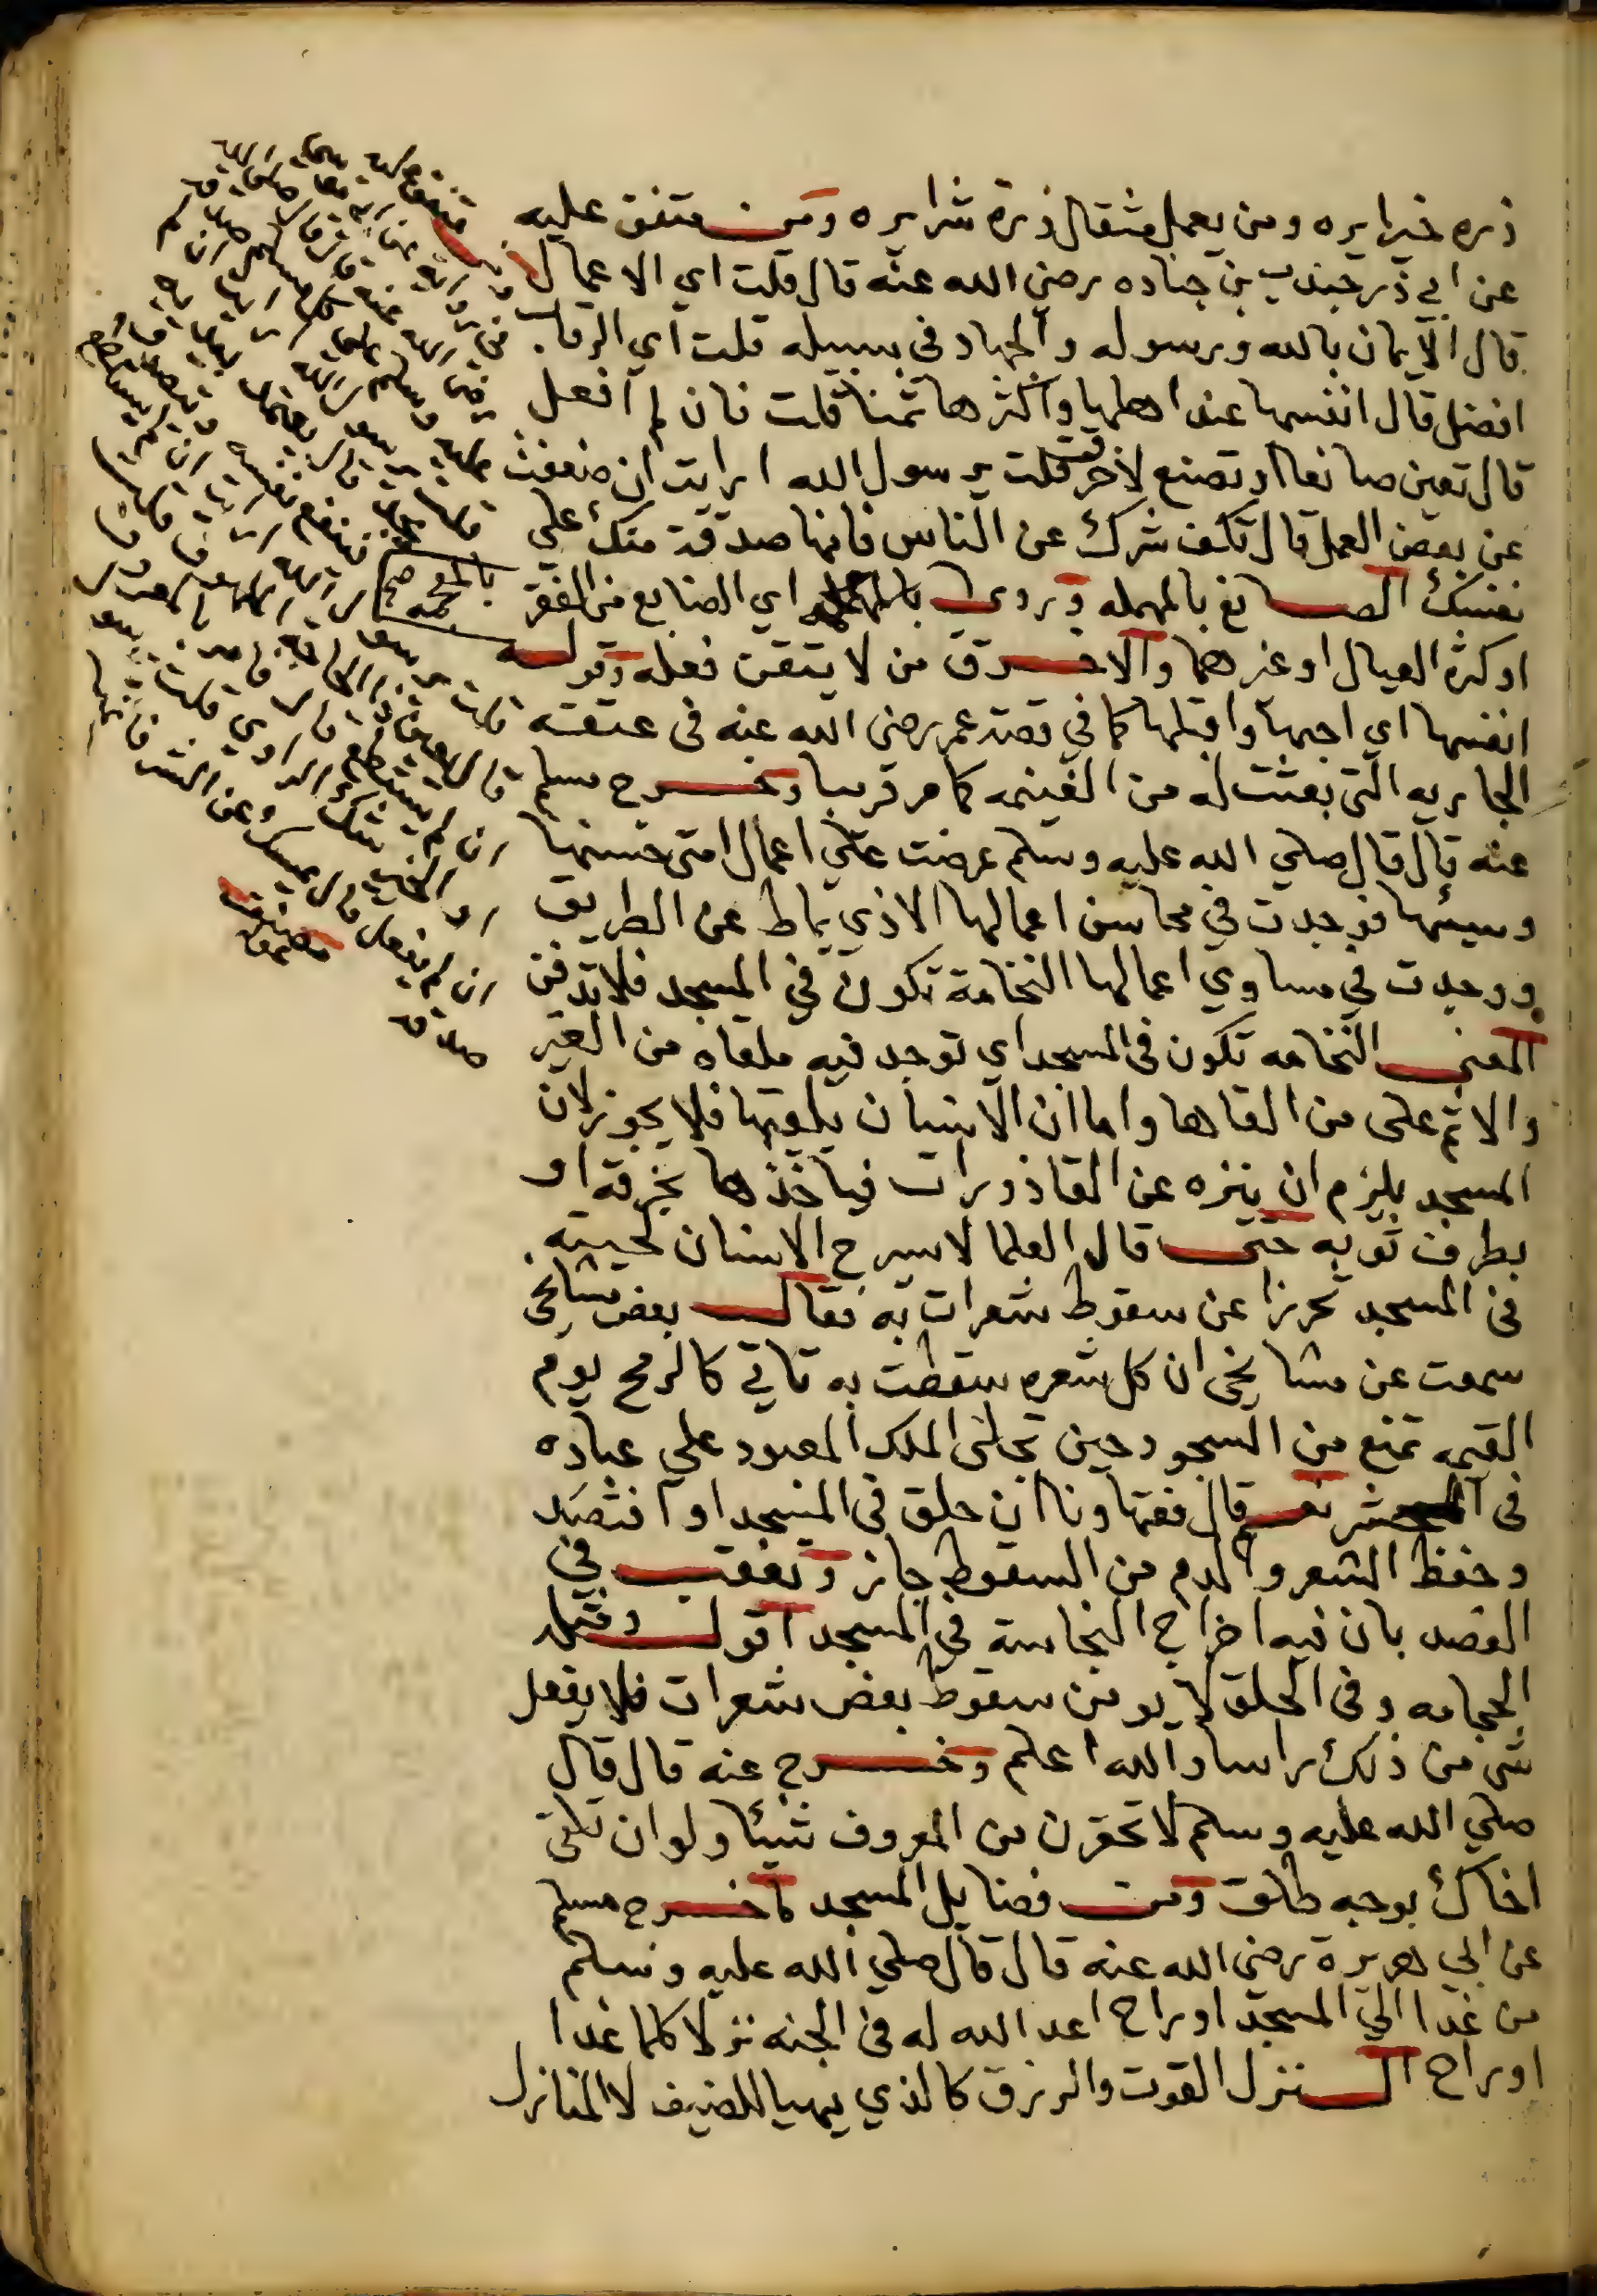 ذره خيرا يره ومن يعمل مثقال ذرة شرا يره ومن متفق عليه
عن ابي ذر جندب بن جناده رضي الله عنه قال قلت اي الاعمال
قال الايمان بالله ورسوله والجهاد في سبيله قلت اي الرقاب
افضل قال انفسها عند اهلها واكثرها ثمنا قلت فان لم افعل
قال تعين صانعا او تصنع لاخرق قلت يرسول الله ارايت ان ضعفت
عن بعض العمل قال تكف شرك عن الناس فانها صدقة منك على
نفسك الصانع بالمهمله وروي بالمعجمه اي الضايع من الفقر
او كثره العيال او غيرهما والاخرق من لا يتقن فعله وقوله
انفسها اي اجبها واقبلها كما في قصة عمر رضي الله عنه في عتقه
الجاريه التي بعثت له من الغنيمه كما مر قريبا وخرج مسلم
عنه قال قال صلي الله عليه وسلم عرضت علي اعمال امتى حسنها
وسيئها فوجدت في محاسن اعمالها الاذي يماط عن الطريق
ووجدت في مساوي اعمالها النخامة تكون في المسجد فلا تدفن
المعنى النخامه تكون في المسجد اي توجد فيه ملقاه من الغير
والاثم على من القاها واما ان الانسان يلقيها فلا يجوز لان
المسجد يلزم ان ينزه عن القاذورات فياخذها بخرقة او
بطرف ثوبه حتى قال العلما لا يسرح الانسان لحيته
في المسجد تحرزا عن سقوط شعرات به فقال بعض مشايخى
سمعت عن مشايخى ان كل شعره سقطت به تاتي كالرمح يوم
القيمه تمنع من السجود حين تجلى الملك المعبود على عباده
في المحشر نعم قال فقهاونا ان حلق في المسجد او افتصد
وحفظ الشعر والدم من السقوط جاز وتعقب في
الفصد بان فيه اخراج النجاسة في المسجد اقول ومثله
الحجامه وفي الحلق لا يومن سقوط بعض شعرات فلا يفعل
شي من ذلك راسا والله اعلم وخرج عنه قال قال
صلي الله عليه وسلم لا تحقرن من المعروف شيئا ولو ان تلقى
اخاك بوجه طلق ومن فضايل المسجد ما خرج مسلم
عن ابي هريرة رضي الله عنه قال قال صلي الله عليه وسلم
من غدا الي المسجد او راح اعد الله له في الجنه نزلا كلما غدا
او راح النزل القوت والرزق كالذي يهيا للضيف لا المنازل
بالمعجمه صح
رضي الله عنه قال قال صلى الله
عليه وسلم على كل مسلم صدقه
قال يعتمل بيديه
فينفع نفسه ويتصدق
قال ارايت ان لم يستطع
قال يعين ذا الحاجة الملهوف
ان لم يستطع قال يامر بالمعروف
او الخير شك الراوي قلت
ان لم يفعل قال يمسك عن الشر فانها
صدقه